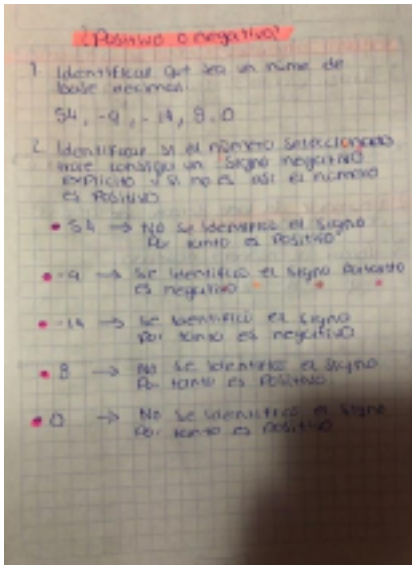 ¿Positivo o negativo?
1. Identificar que sea un número de
base decimal.
54, -9, -14, 8, 0
2. Identificar si el número seleccionado
trae consigo un signo negativo
explícito y si no es así el número
es Positivo
54 → No se identificó el signo
Por tanto es Positivo
-9 → Se identificó el signo Por tanto
es negativo
-14 → Se identificó el signo
Por tanto es negativo
8 → No se identificó el signo
Por tanto es Positivo
0 → No se identificó el signo
Por tanto es Positivo